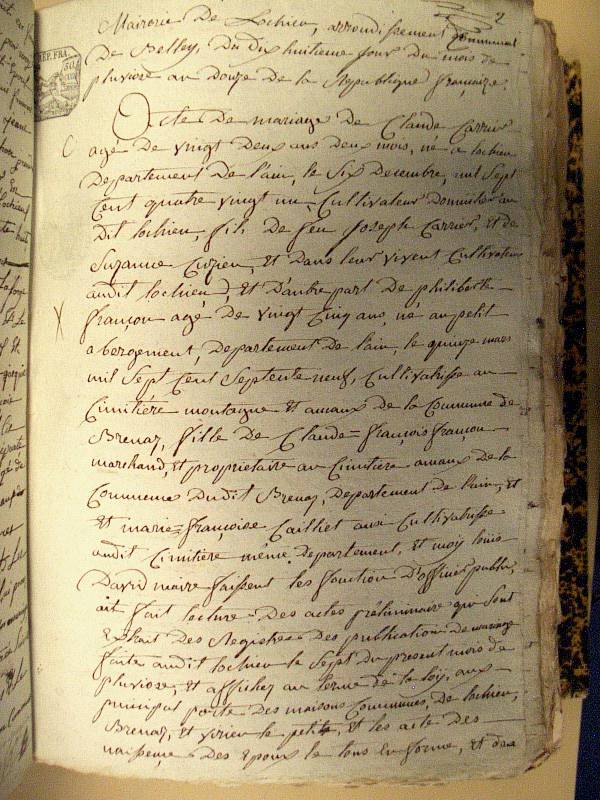 2
Mairerie De Lochieu, arrondissement Communal
De Belley, Du dix huitieme jour Du mois de
pluviose an douze de la Republique française.
REP. FRA.
Acte De mariage De Claude Carrier
agé De vingt Deux ans deux mois, né a lochieu
Departement De l'ain, le Six Decembre, mil Sept
Cent quatre vingt un, Cultivateur Domicilié au
Dit lochieu, fils De feu Joseph Carrier, et de
Suzanne et Dans leur vivent Cultivateurs
audit lochieu, et D'autre part De philiberte
françon agé De vingt Cinq ans, né au petit
abergement, Departement De l'ain, le quinze mars
mil Sept Cent Septente neuf, Cultivatrisse au
Cimitière montagne et amaux de la Commune de
Brenaz, fille De Claude=françois françon
marchand, et propriétaire au Cimitiere amaux De la
Commune Dudit Brenaz, Departement De l'ain, et
et marie=françoise Cailliet aussi Cultivatrisse
audit Cimitière même Departement, et moy louis
David maire faissent les fonction D'officier public,
ait fait lecture Des actes préliminaire qui Sont
Extrait Des Registres Des publication De mariage
faite audit lochieu le Sept Du present mois de
pluviose, et affichez au terme de la loy, aux
principal porte Des maisons Communes, De lochieu,
Brenaz, et virieu le petit, et les acte Des
naissence Des Epoux le tous En forme, et de